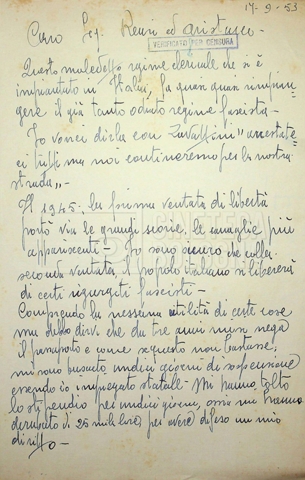 17-9-53
Caro Sig. Renzi ed Aristarco -
VERIFICATO PER CENSURA
Questo maledetto regime clericale che si è
impiantato in Italia, fa quasi quasi rimpian-
gere il già tanto odiato regime fascista -
Io vorrei dirla con Zavattini "arrestate
ci tutti ma noi continueremo per la nostra
strada" -
Il 1945: la prima ventata di libertà
portò via le grandi scorie, le canaglie più
appariscenti - Io sono sicuro che nella
seconda ventata il popolo italiano si libererà
di certi rigurgiti fascisti -
Comprendo la nessuna utilità di certe cose
ma debbo dirvi che da tre anni mi si nega
il passaporto e come se questo non bastasse,
mi sono buscato undici giorni di sospensione
essendo io impiegato statale - Mi hanno tolto
lo stipendio per undici giorni, ossia mi hanno
derubato di 25 mila lire per avere difeso un mio
diritto -